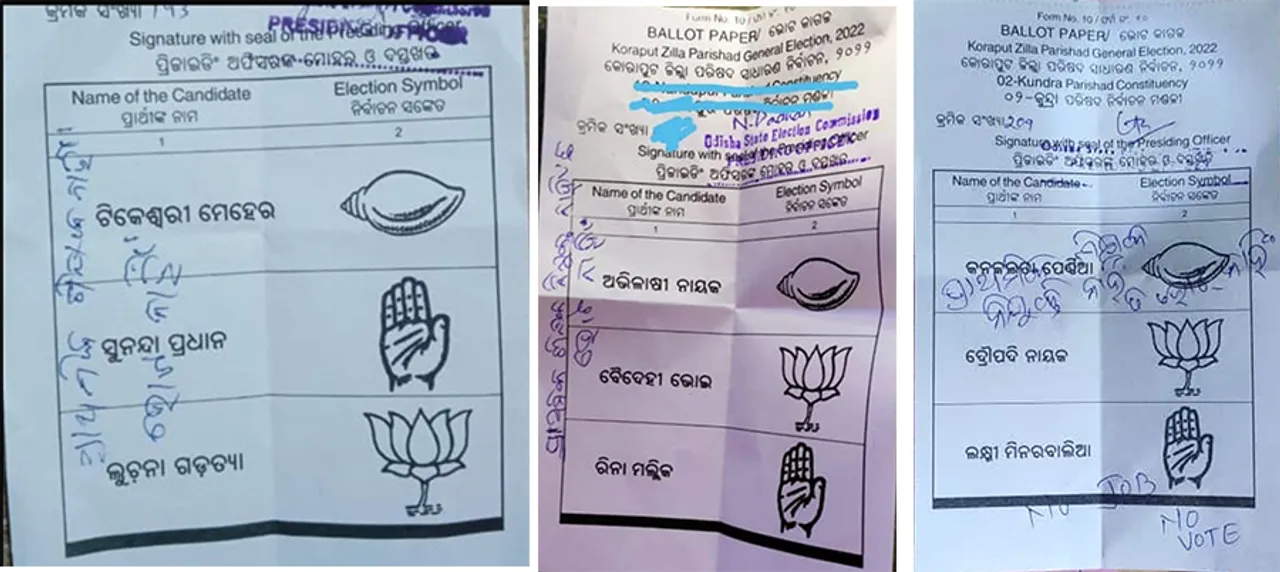 କ୍ରମିକ ସଂଖ୍ୟା 193
PRESIDING OFFICER
Signature with seal of the Presiding Officer
ପ୍ରିଜାଇଡିଂ ଅଫିସରଙ୍କ ମୋହର ଓ ଦସ୍ତଖତ
Name of the Candidate
ପ୍ରାର୍ଥୀଙ୍କ ନାମ
Election Symbol
ନିର୍ବାଚନ ସଙ୍କେତ
1
2
ଟିକେଶ୍ୱରୀ ମେହେର
ସୁନନ୍ଦା ପ୍ରଧାନ
ଲୁଚନା ଗଡ଼ତ୍ୟା
ପ୍ରାଥମିକ ଶିକ୍ଷକ ନିଯୁକ୍ତି
ନାହିଁ
ଭୋଟ
Form No. 10 / ଫର୍ମ ନଂ. ୧୦
BALLOT PAPER/ ଭୋଟ କାଗଜ
Koraput Zilla Parishad General Election, 2022
କୋରାପୁଟ ଜିଲ୍ଲା ପରିଷଦ ସାଧାରଣ ନିର୍ବାଚନ, ୨୦୨୨
Constituency
ନିର୍ବାଚନ ମଣ୍ଡଳୀ
କ୍ରମିକ ସଂଖ୍ୟା
Odisha State Election Commission
Signature with seal of the Presiding Officer
PRESIDING OFFICER
ପ୍ରିଜାଇଡିଂ ଅଫିସରଙ୍କ ମୋହର ଓ ଦସ୍ତଖତ
Name of the Candidate
ପ୍ରାର୍ଥୀଙ୍କ ନାମ
Election Symbol
ନିର୍ବାଚନ ସଙ୍କେତ
1
2
ଅଭିଳାଷୀ ନାୟକ
ବୈଦେହୀ ଭୋଇ
ରିନା ମଲ୍ଲିକ
ପ୍ରାଥମିକ ଶିକ୍ଷକ ନିଯୁକ୍ତି ନାହିଁ ତ
ଭୋଟ ନାହିଁ
Form No. 10 / ଫର୍ମ ନଂ. ୧୦
BALLOT PAPER/ ଭୋଟ କାଗଜ
Koraput Zilla Parishad General Election, 2022
କୋରାପୁଟ ଜିଲ୍ଲା ପରିଷଦ ସାଧାରଣ ନିର୍ବାଚନ, ୨୦୨୨
02-Kundra Parishad Constituency
୦୨-କୁନ୍ଦ୍ରା ପରିଷଦ ନିର୍ବାଚନ ମଣ୍ଡଳୀ
କ୍ରମିକ ସଂଖ୍ୟା 209
Signature with seal of the Presiding Officer
ପ୍ରିଜାଇଡିଂ ଅଫିସରଙ୍କ ମୋହର ଓ ଦସ୍ତଖତ
Name of the Candidate
ପ୍ରାର୍ଥୀଙ୍କ ନାମ
Election Symbol
ନିର୍ବାଚନ ସଙ୍କେତ
1
2
କନକଲତା ପେଣ୍ଠିଆ
ପ୍ରାଥମିକ ଶିକ୍ଷକ
ନିଯୁକ୍ତି ନାହିଁ ତ ଭୋଟ ନାହିଁ
ଦ୍ରୌପଦି ନାୟକ
ଲକ୍ଷ୍ମୀ ମିନରବାଲିଆ
NO JOB
NO
VOTE